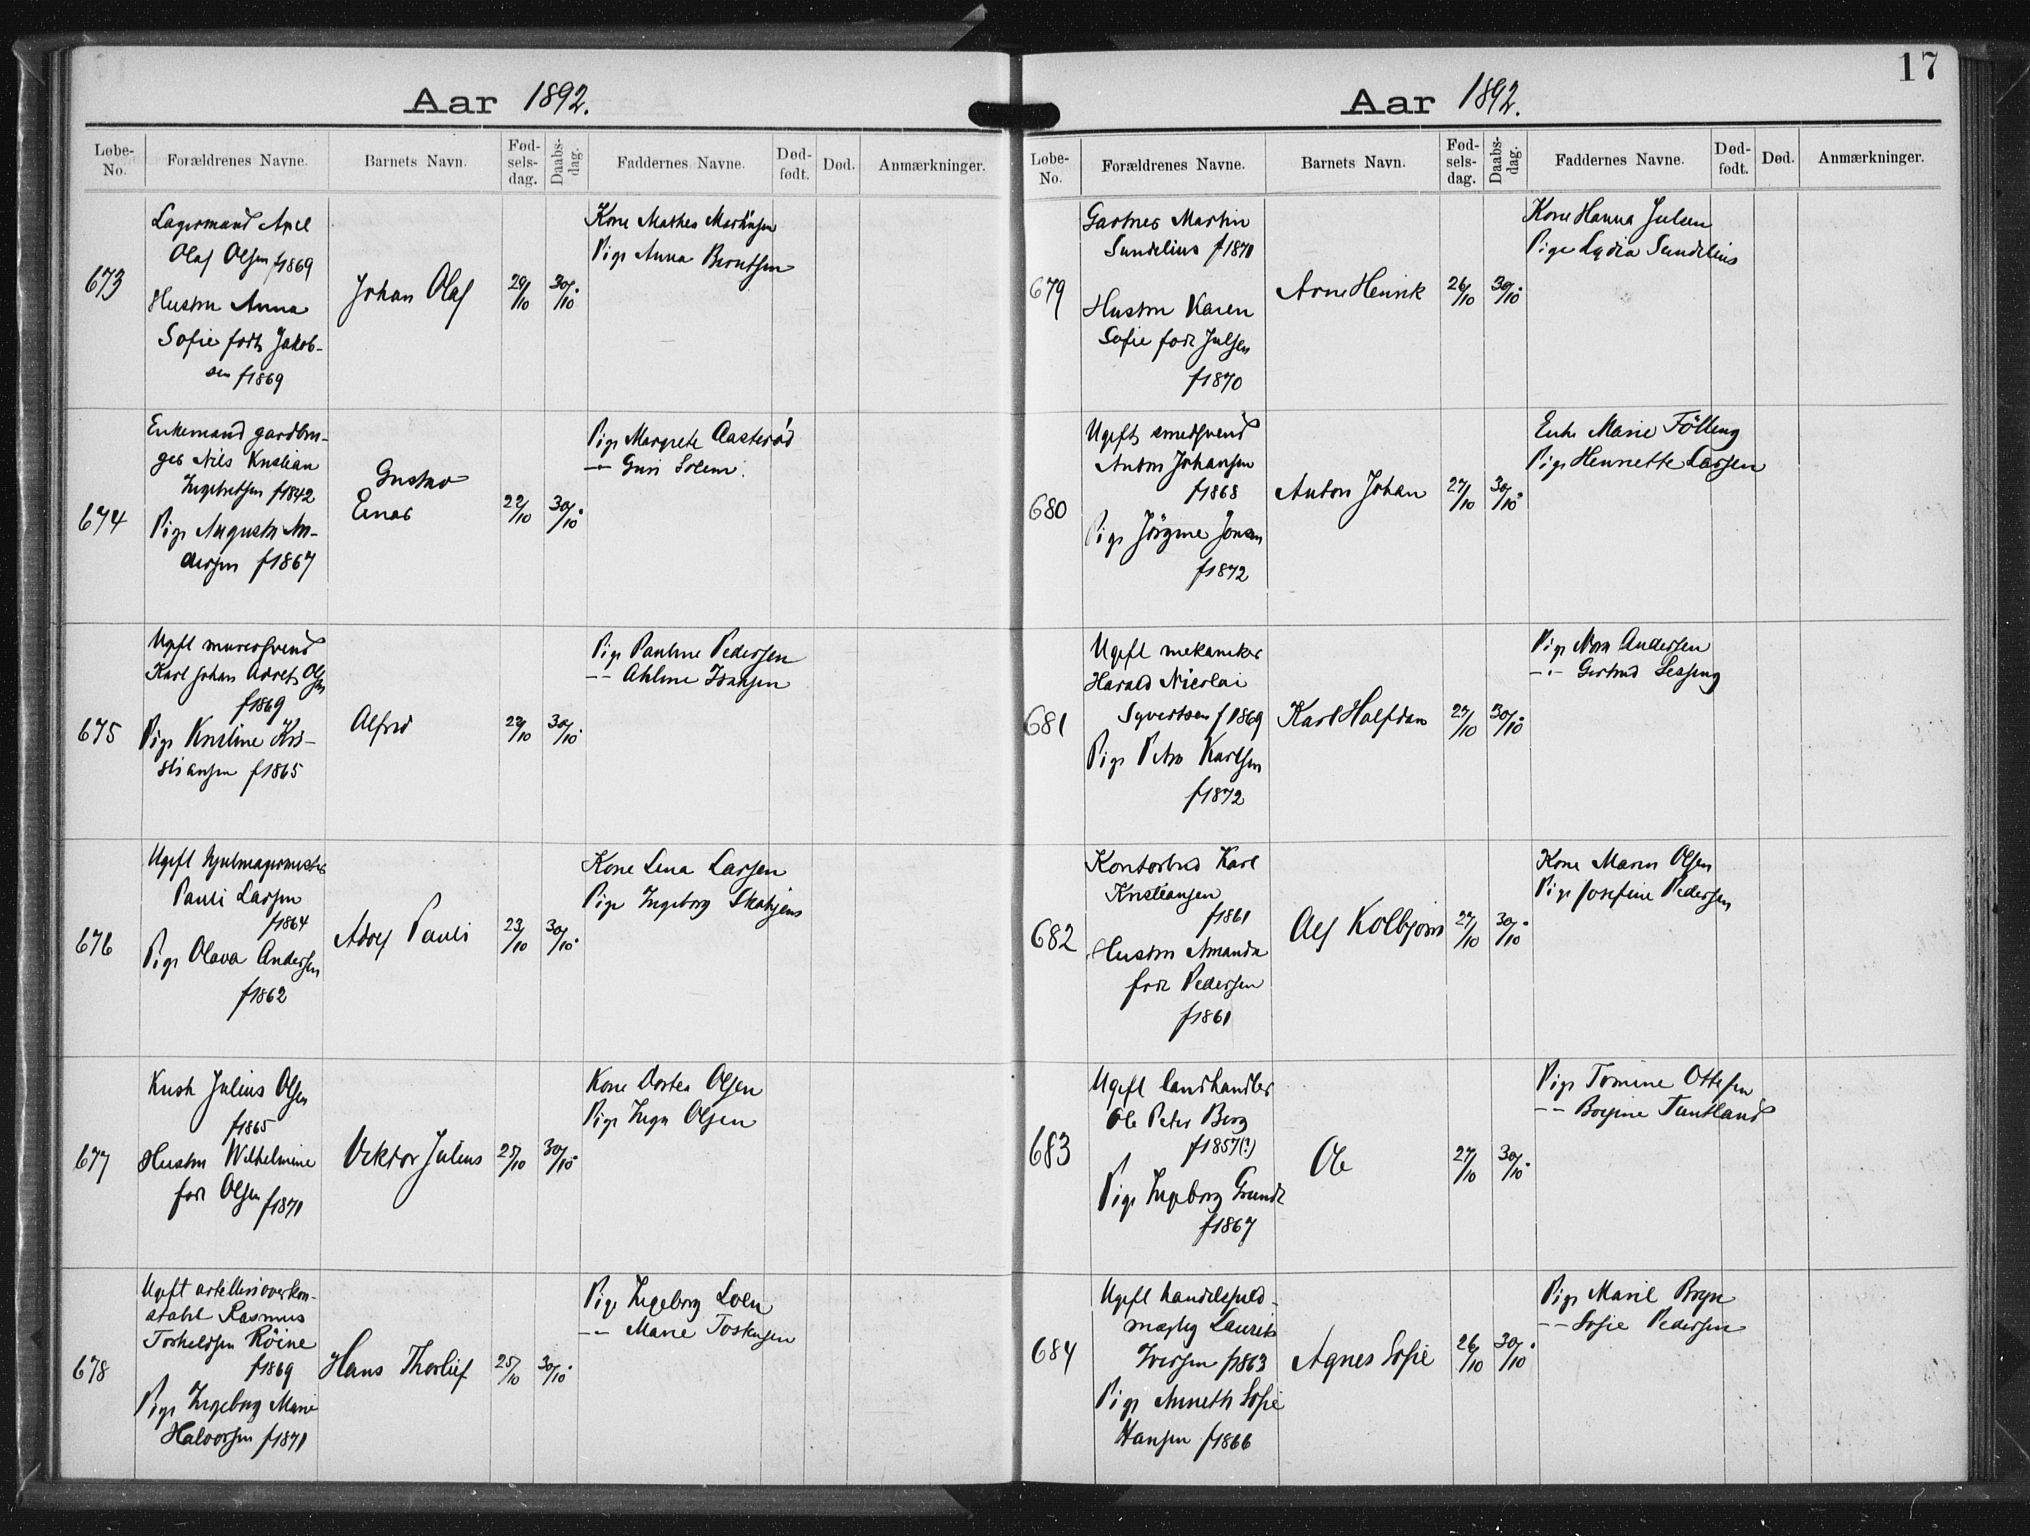 Aar 1892.
Løbe-No. Forældrenes Navne. Barnets Navn. Fød-sels-dag. Daabs-dag. Faddernes Navne. Død-født. Død. Anmærkninger.
673
Lagermand Axel
Olaf Olsen f1869
Hustru Anna
Sofie født Jakob-
sen f1869
Johan Olaf
29/10
30/10.
Kone Mathea
Pige Anna Berntsen
674
Enkemand gardbru-
ger Nils Kristian
Ingebretsen f1842
Pige Augusta An-
dersen f1867
Gustav
Einar
22/10
30/10.
Pige Margrete
-"- Guri Solem
675
Ugift murersvend
Karl Johan Olsen
f1869
Pige Kristine Kri-
stiansen f1865
Alfred
30/10.
Pige Pauline Pedersen
-"-
676
Ugift hjulmagermester
Pauli Larsen
f1864
Pige Olava Andersen
f1862
Adolf Pauli
23/10
30/10.
Kone Lena Larsen
Pige Ingeborg
677
Kusk Julius Olsen
f1865
Hustru Wilhelmine
født Olsen f1871
Viktor Julius
25/10
30/10.
Kone Dortea Olsen
Pige Inga Olsen
678
Ugift artillerioverkon-
stabel Rasmus
Torkeldsen Röine
f1869
Pige Ingeborg Marie
Halvorsen f1871
Hans Thorleif
25/10
30/10.
Pige Ingeborg Loen
-"- Marie
17
Aar 1892.
Løbe-No. Forældrenes Navne. Barnets Navn. Fød-sels-dag. Daabs-dag. Faddernes Navne. Død-født. Død. Anmærkninger.
679
Gartner Martin
Sundelius f1870
Hustru Karen
Sofie født Julsen
f1870
Arne Henrik
26/10
30/10.
Kone Hanna Julsen
Pige Lydia Sundelius
680
Ugift smedsvend
Anton Johansen
f1868
Pige Jörgine Jonsen
f1872
Anton Johan
27/10
30/10.
Enke Marie Fölling
Pige Henriette Larsen
681
Ugift mekaniker
Harald Nicolai
Syvertsen f1869
Pige Petra Karlsen
f1872
Karl Halfdan
27/10
30/10.
Pige Nora Andersen
-"- Gertrud
682
Kontorbud Karl
Kristiansen
f1861
Hustru Amanda
født Pedersen
f1861
Alf Kolbjørn
27/10
30/10.
Kone Maren Olsen
Pige Josefine Pedersen
683
Ugift landhandler
Ole Peter Berg
f1857(?)
Pige Ingeborg Grundt
f1867
Ole
27/10
30/10.
Pige Tomine Ottesen
-"-
684
Ugift handelsfuld-
mægtig Laurits
Iversen f1863
Pige Anneth Sofie
Hansen f1866
Agnes Sofie
26/10
30/10.
Pige Marie
-"- Sofie Pedersen